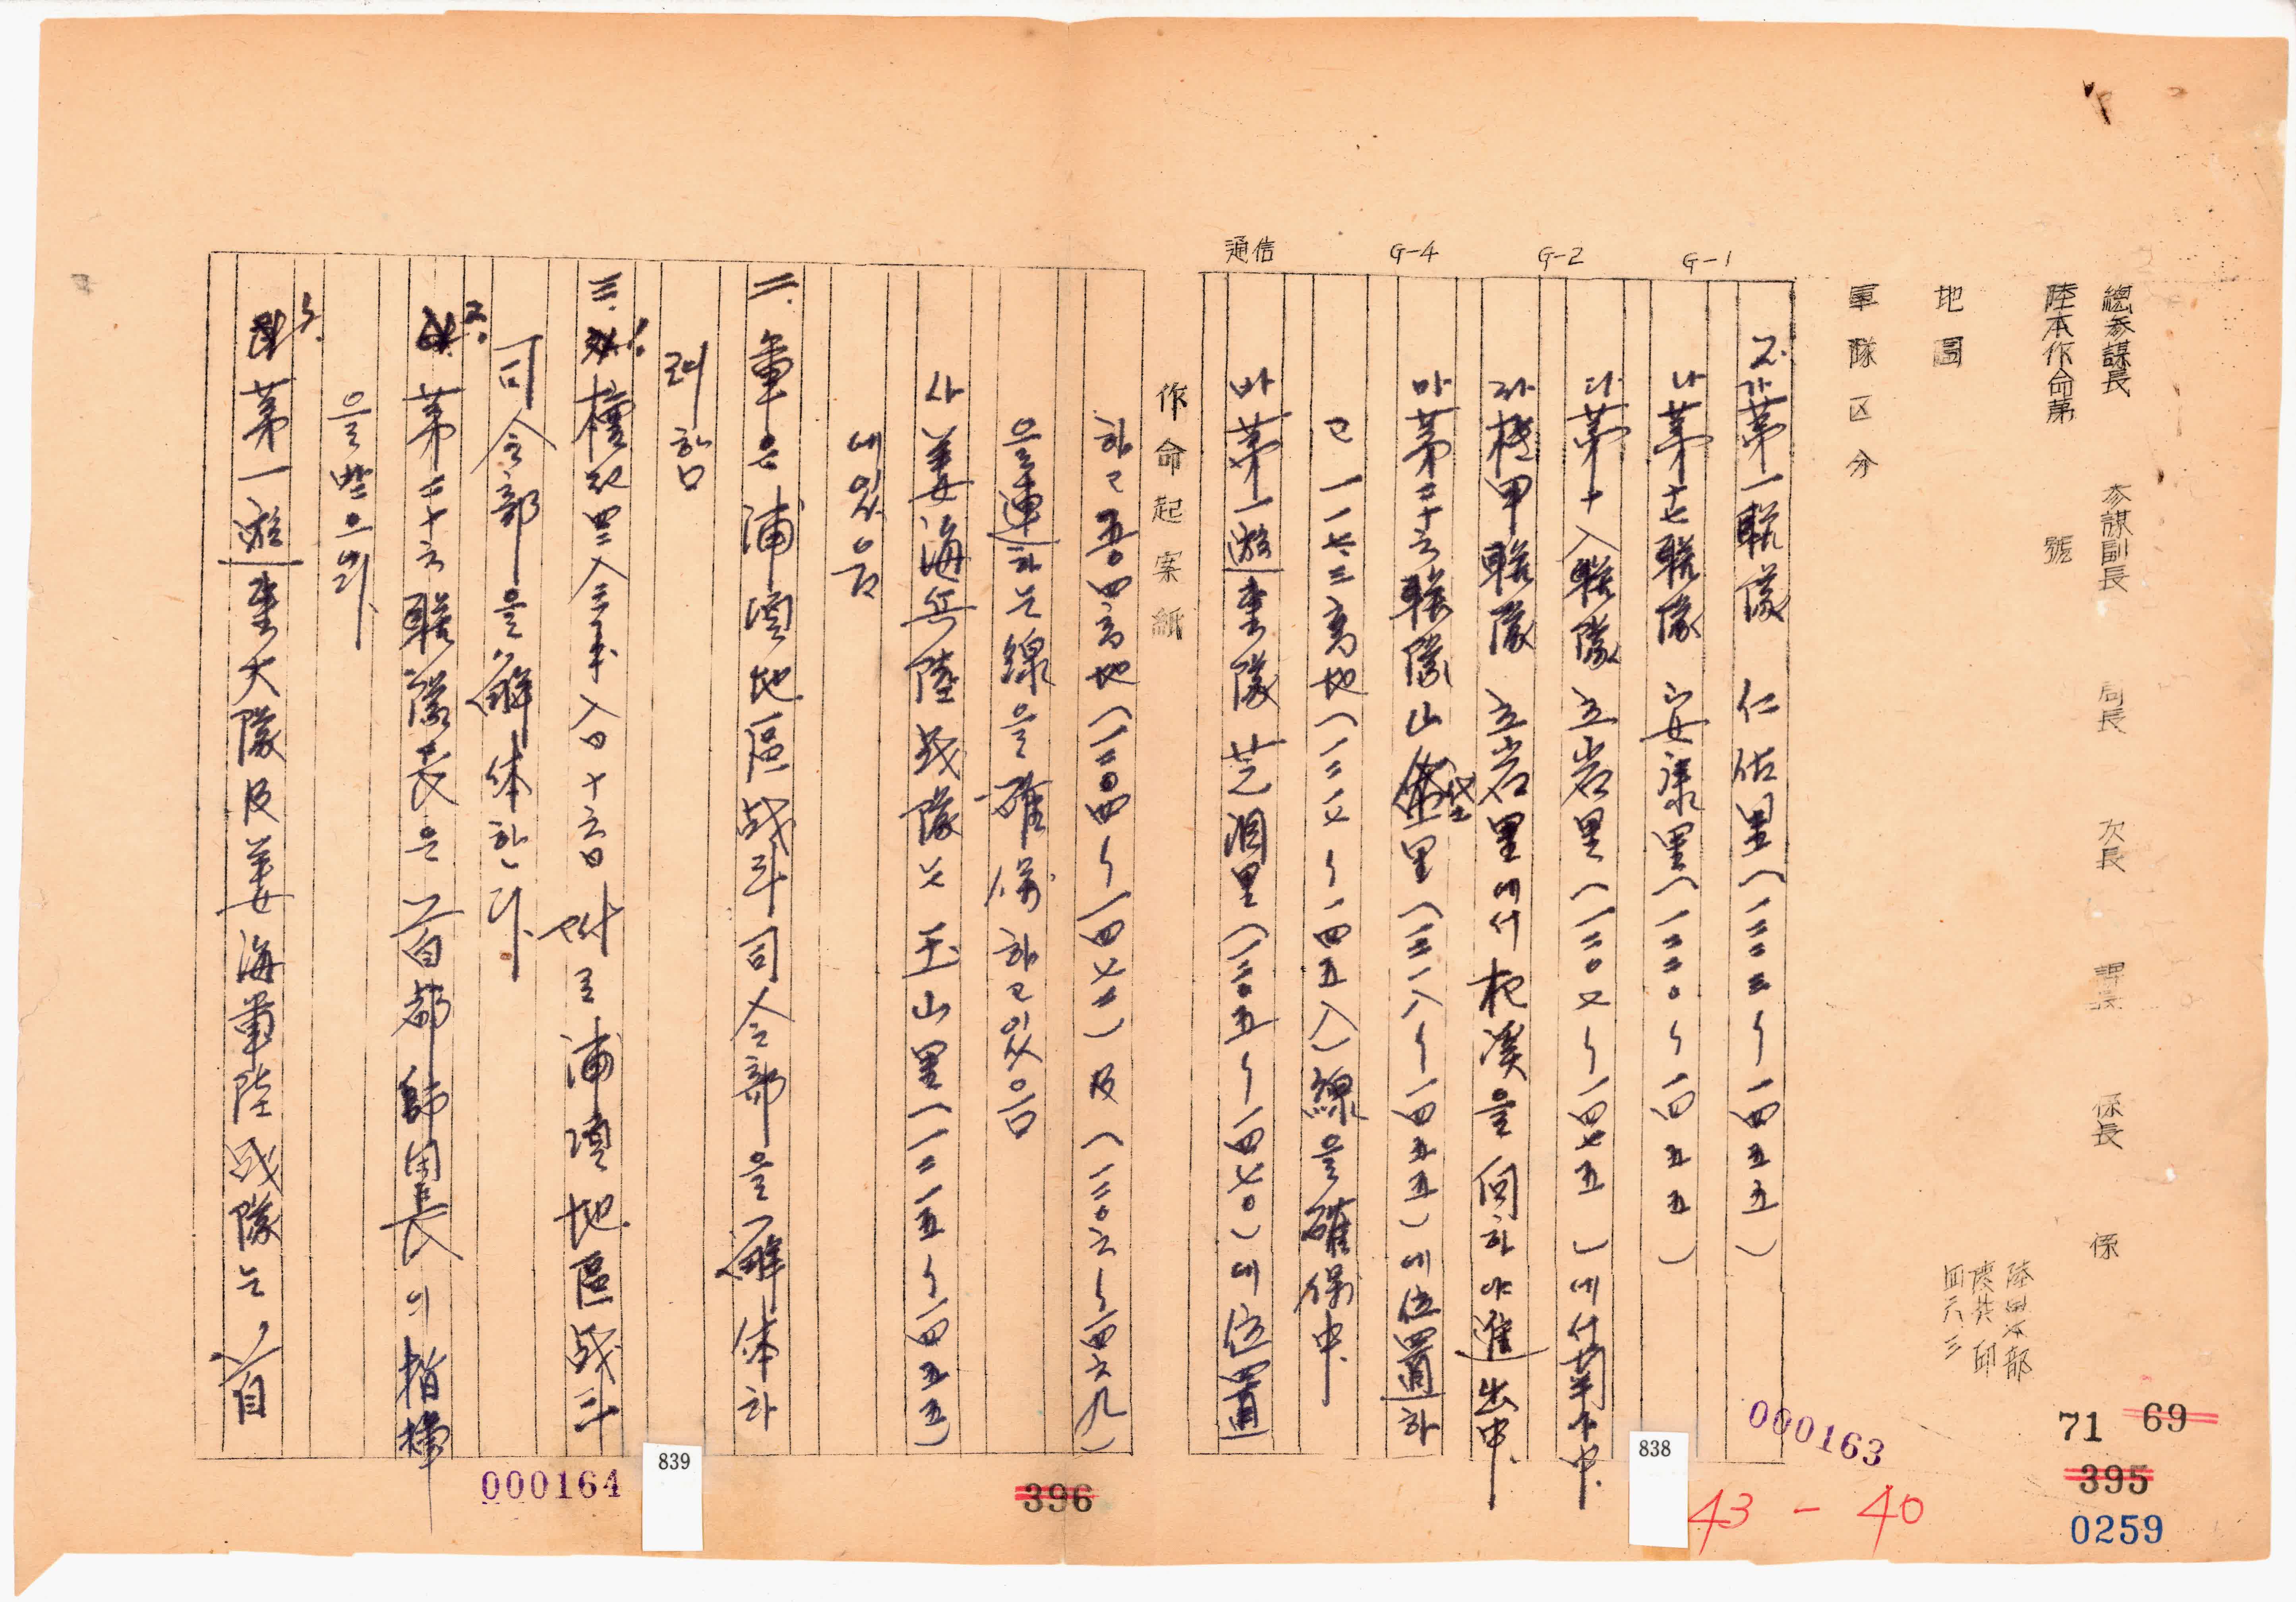 總參謀長 參謀副長 局長 次長 課長 係長 係
陸本作命第 號
地圖
軍隊区分
G-1
G-2
G-4
通信
2. 가 第一聯隊 仁佑里(一二二三~一四五五)
나 第十七聯隊 安康里(一二二〇~一四五五)
다 第十八聯隊 立岩里(一二〇七~一四七五)에서
라 機甲聯隊 立岩里에서 杞溪을 向하야 進出中.
마 第二十六聯隊 山垈里(一二一八~一四五五)에 位置하
고 一一七三高地(一二一七~一四五八)線을 確保中.
바 第一遊擊隊 芝洞里(一二〇五~一四七〇)에 位置
作命起案紙
하고 五四高地(一二〇四~一四七二)及(一二〇六~一四六九)
을 連하는 線을 確保하고있음
사 姜海兵陸戰隊는 玉山里(一二一五~一四五五)
에있음
二. 軍은 浦項地區战斗司令部을 解体하
려함
三. 1. 檀紀四二八三年八月十六日附로 浦項地區战斗
司令部을 解体한다.
2. 第二十六聯隊長은 首都師団長의 指揮
을받으라.
3. 第一遊擊大隊及姜海軍陸战隊는 首
000163
71 69
395
0259
838
43 - 40
000164
839
396